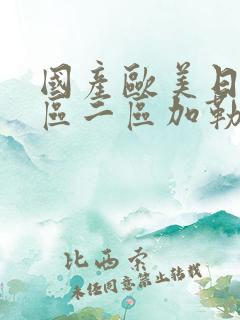 國產歐美日
區二區加勒
比西索
未经同意禁止转载